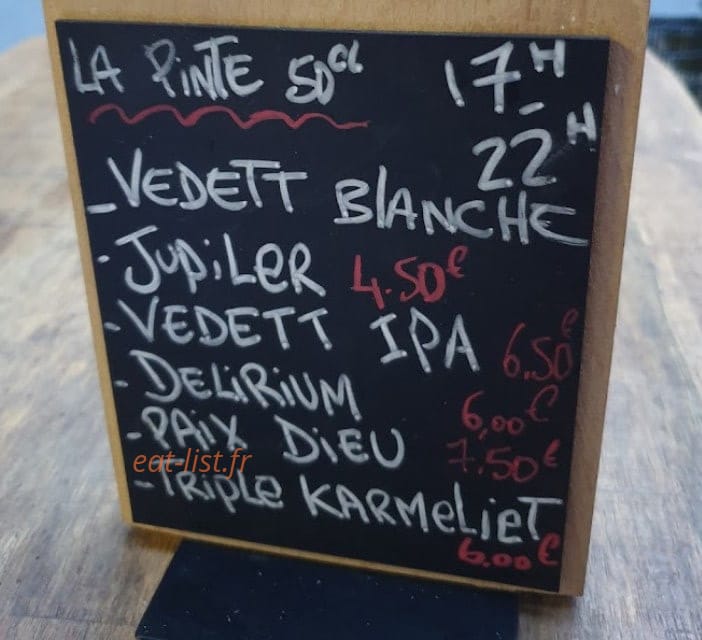 LA PINTE 50cl 17H
-
22H
- VEDETT BLANCHE
- JUPILER 4.50€
- VEDETT IPA 6.50€
- DELIRIUM 6,00€
- PAIX DIEU 7.50€
eat-list.fr
- TRIPLE KARMELIET
6.00€